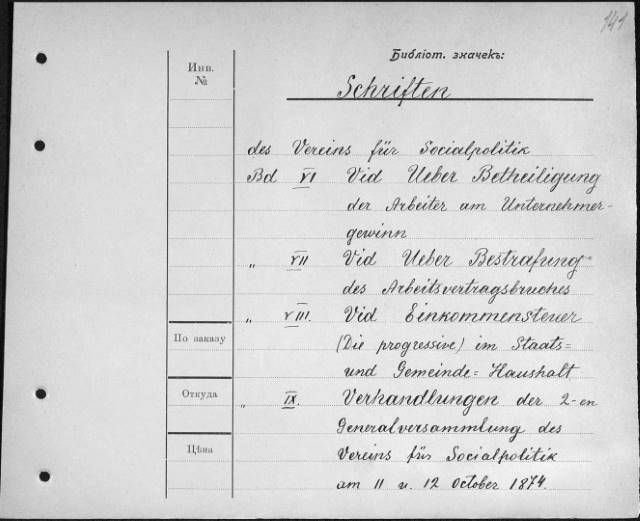 141
Библіот. значекъ:
Инв.
№
Schriften
des Vereins für Socialpolitik
Bd VI Vid Ueber Betheiligung
der Arbeiter am Unternehmer-
gewinn
„ VII Vid Ueber Bestrafung
des Arbeitsvertragsbruches
„ VIII. Vid Einkommensteuer
(Die progressive) im Staats-
По заказу
und Gemeinde=Haushalt
Откуда
„ IX. Verhandlungen der 2-en
Generalversammlung des
Цѣна
Vereins für Socialpolitik
am 11 u. 12 October 1874.